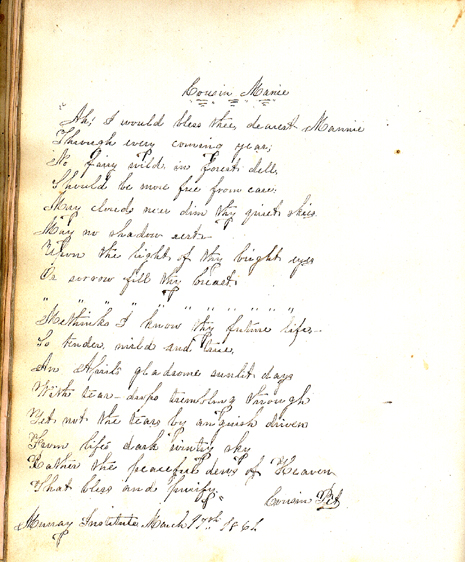 Cousin Manie
"Ah! I would bless thee, dearest Mannie
Through every coming year;
No fairy wild in forest dell,
Should be more free from care.
May clouds ne'er dim thy quiet skies
May no shadow rest
Upon the light of thy bright eyes
Or sorrow fill thy breast.
" " " " " " " " " "
Methinks I know thy future life
So tender, mild and true,
An April's gladsome sunlit days
With tear-drops trembling through
Yet not the tears by anguish driven
From life's dark wintry sky
Rather the peaceful dews of Heaven
That bless and purify."
Cousin
Murray Institute March 17th 1861